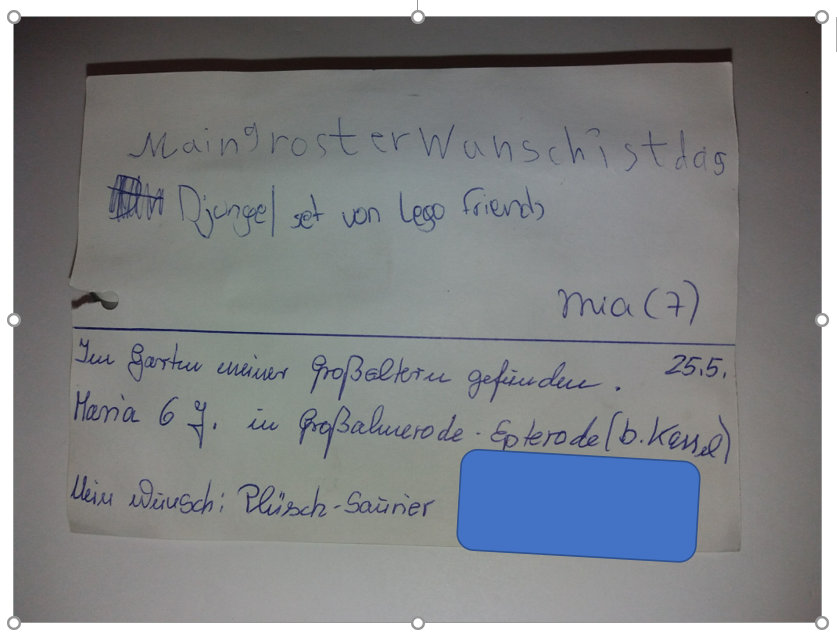 Maingrosterwunschistdas
Djungel set von Lego friends
Mia (7)
Im Garten meiner Großeltern gefunden. 25.5.
Maria 6 J. in Großalmerode-Epterode (b. Kassel)
Mein Wunsch: Plüsch-Saurier